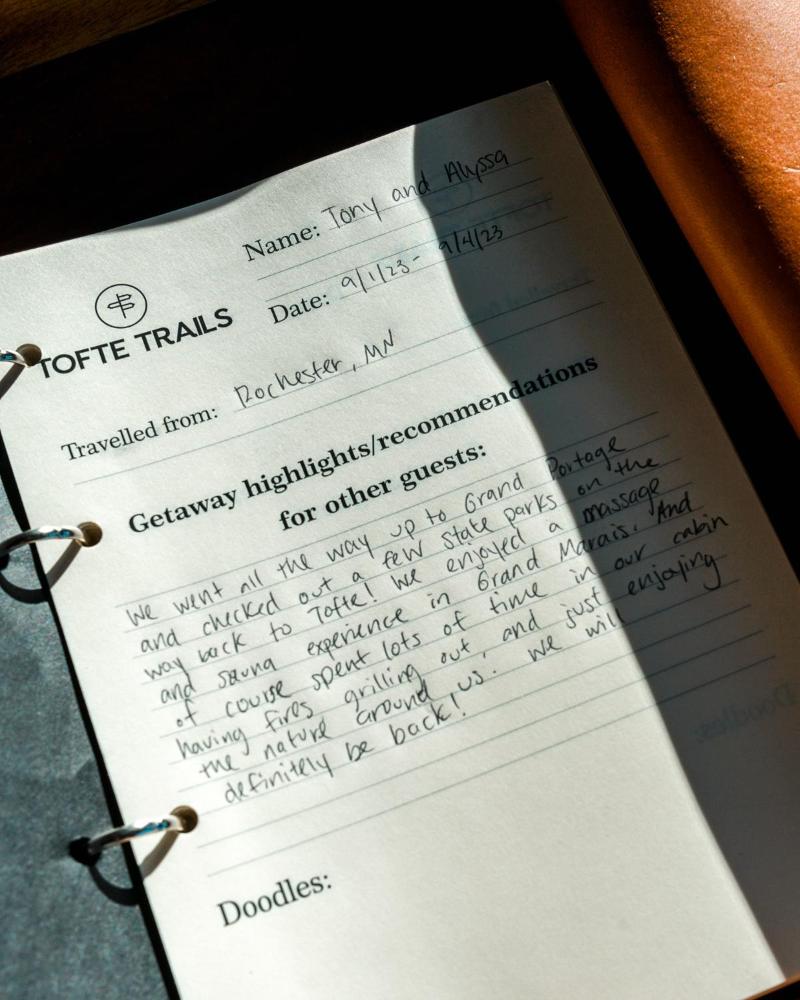 Name: Tony and Alyssa
Date: 9/1/23 - 9/4/23
TOFTE TRAILS
Travelled from: Rochester, MN
Getaway highlights/recommendations
for other guests:
We went all the way up to Grand Portage
and checked out a few state parks on the
way back to Tofte! We enjoyed a massage
and sauna experience in Grand Marais. And
of course spent lots of time in our cabin
having fires, grilling out, and just enjoying
the nature around us. We will
definitely be back!
Doodles: